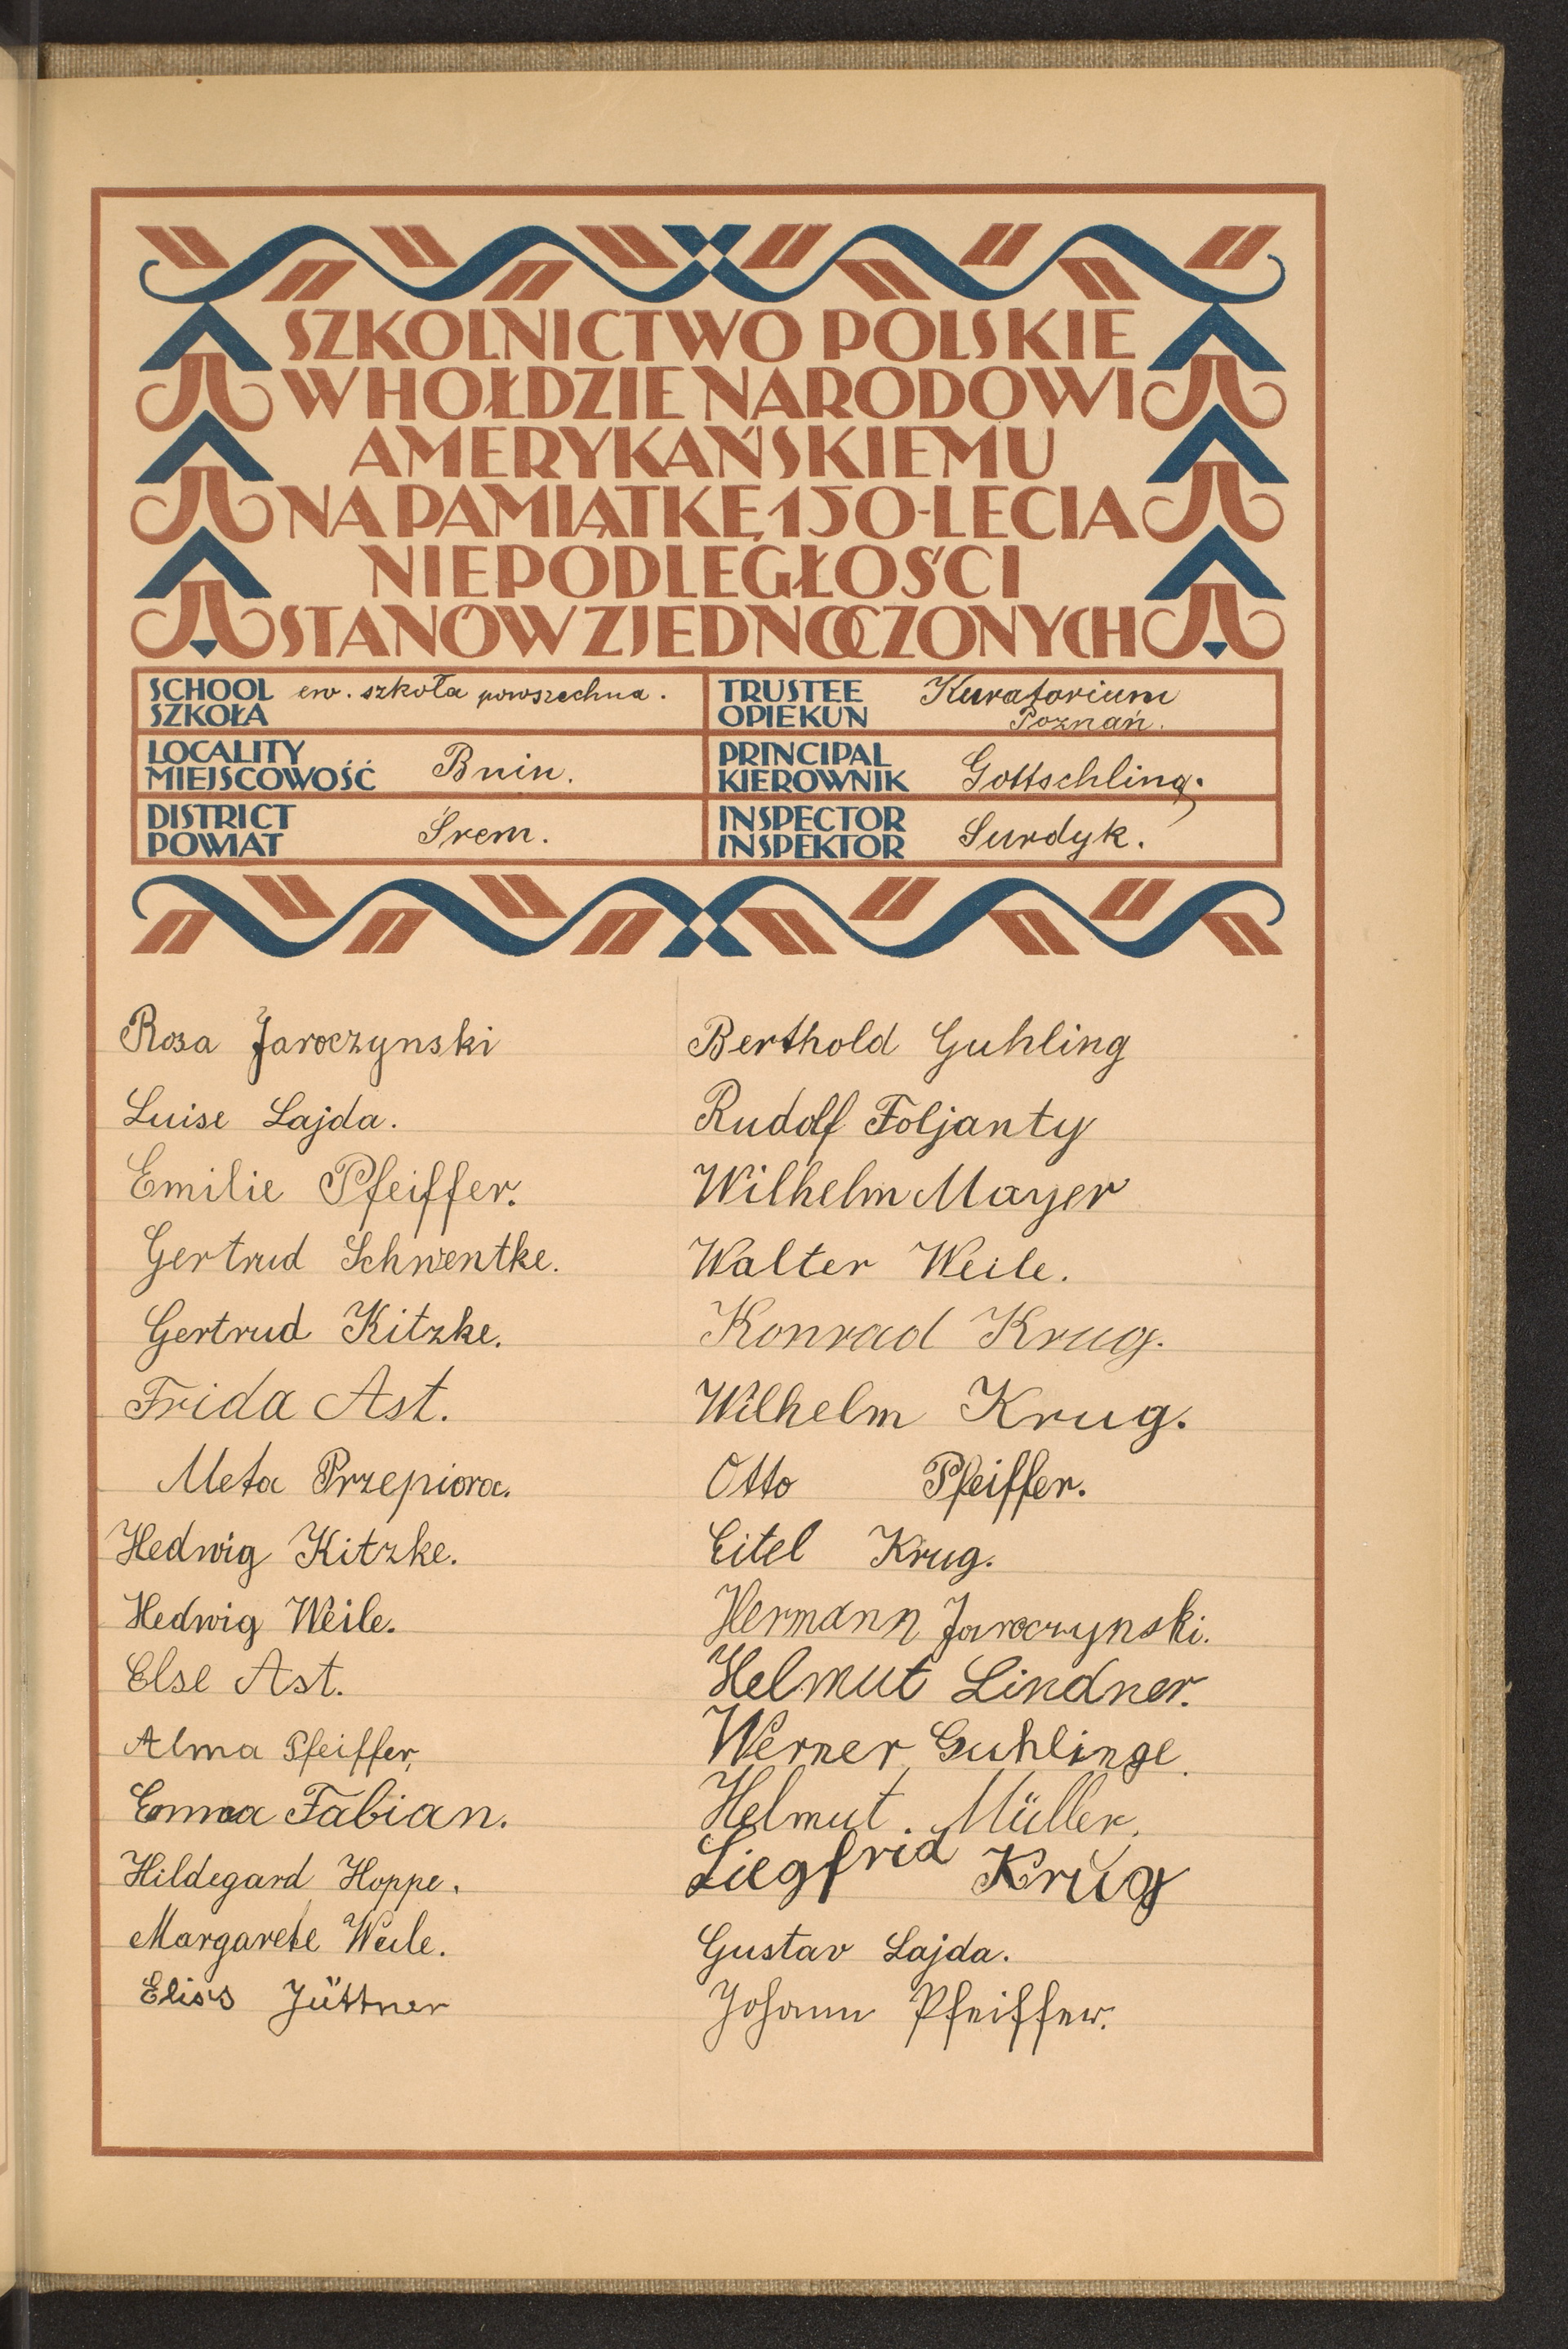 SZKOLNICTWO POLSKIE
W HOŁDZIE NARODOWI
AMERYKAŃSKIEMU
NA PAMIĄTKĘ 150-LECIA
NIEPODLEGŁOŚCI
STANÓW ZJEDNOCZONYCH
SCHOOL ew. szkoła powszechna.
SZKOŁA
TRUSTEE Kuratorium
OPIEKUN Poznań.
LOCALITY
MIEJSCOWOŚĆ Bnin.
PRINCIPAL
KIEROWNIK Gottschling.
DISTRICT
POWIAT Śrem.
INSPECTOR
INSPEKTOR Surdyk.
Rosa Jaroczynski
Luise Lajda.
Emilie Pfeiffer.
Gertrud Schwentke.
Gertrud Kitzke.
Frida Ast.
Meta Przepiora.
Hedwig Kitzke.
Hedwig Weile.
Else Ast.
Alma Pfeiffer,
Emma Fabian.
Hildegard Hoppe.
Margarete Weile.
Jüttner
Berthold Guhling
Rudolf Foljanty
Wilhelm Mayer
Walter Weile.
Konrad Krug.
Wilhelm Krug.
Otto Pfeiffer.
Eitel Krug.
Hermann Jaroczynski.
Helmut Lindner.
Werner Guhlinge.
Helmut. Müller.
Siegfrid Krug
Gustav Lajda.
Johann Pfeiffer.